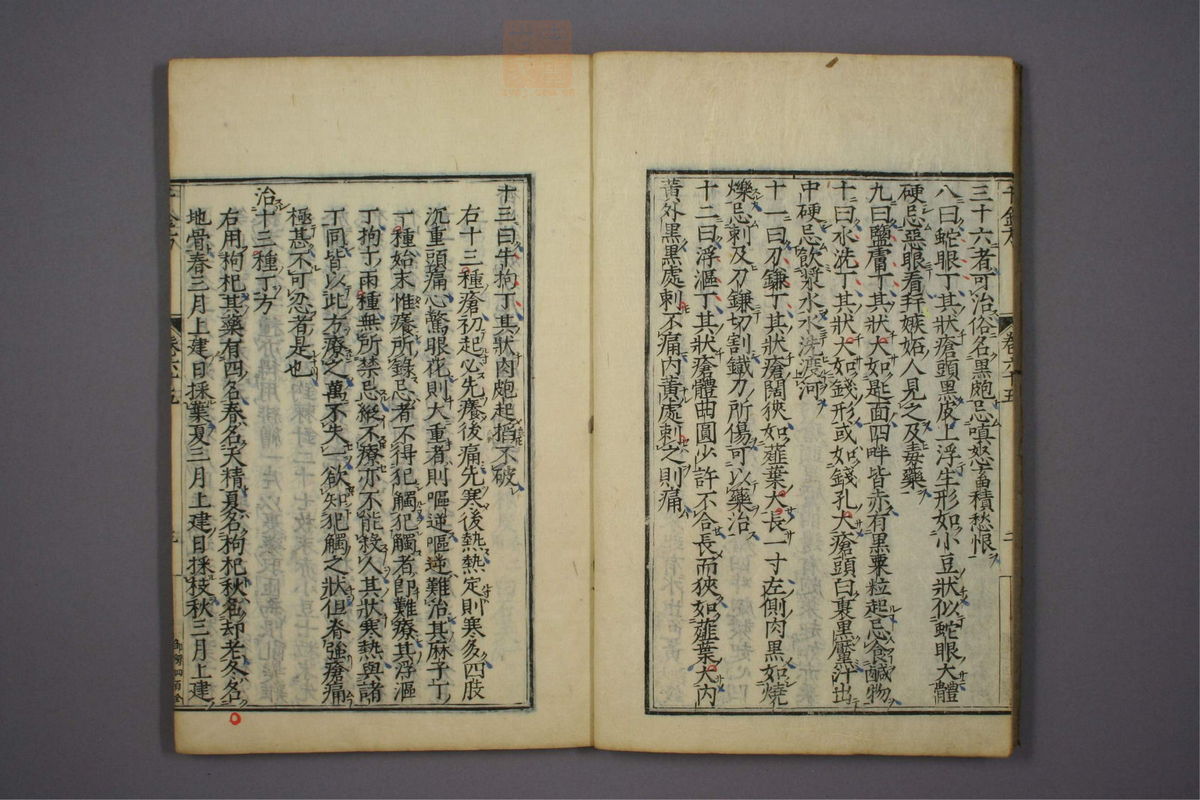 三十六者可治俗名黑皰忌嗔怒畜積愁恨
八曰蛇眼丁其狀瘡頭黑皮上浮生形如小豆狀似蛇眼大體
硬忌惡眼看拜嫉妬人見之及毒藥
九曰鹽膚丁其狀大如匙面四畔皆赤有黑粟粒起忌食鹹物
十曰水洗丁其狀大如錢形或如錢孔大瘡頭白裏黑黶汁出
中硬忌飲漿水水洗渡河
十一曰刀鎌丁其狀瘡闊狹如薤葉大長一寸左側肉黑如燒
爍忌刺及刀鎌切割鐵刀所傷可以藥治
十二曰浮漚丁其狀瘡體曲圓少許不合長而狹如薤葉大內
黃外黑黑處刺不痛內黃處刺之則痛
十三曰牛拘丁其狀肉皰起掐不破
右十三種瘡初起必先癢後痛先寒後熱熱定則寒多四肢
沉重頭痛心驚眼花則大重者則嘔逆嘔逆難治其麻子丁
一種始末惟癢所錄忌者不得犯觸犯觸者即難療其浮漚
丁拘丁兩種無所禁忌縱不療亦不能殺人其狀寒熱與諸
丁同皆以此方療之萬不失一欲知犯觸之狀但脊強瘡痛
極甚不可忍者是也
治十三種丁方
右用枸杞其藥有四名春名天精夏名枸杞秋名却老冬名
地骨春三月上建日採葉夏三月上建日採枝秋三月上建